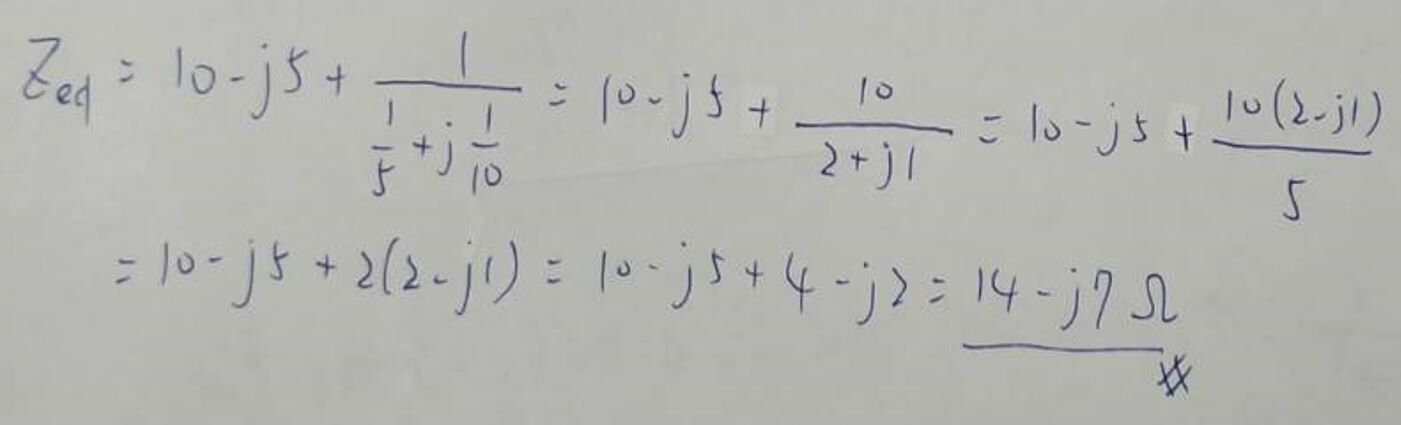 Zeq = 10 - j5 + 1/(1/5 + j 1/10) = 10 - j5 + 10/(2 + j1) = 10 - j5 + 10(2 - j1)/5
= 10 - j5 + 2(2 - j1) = 10 - j5 + 4 - j2 = 14 - j7 Ω